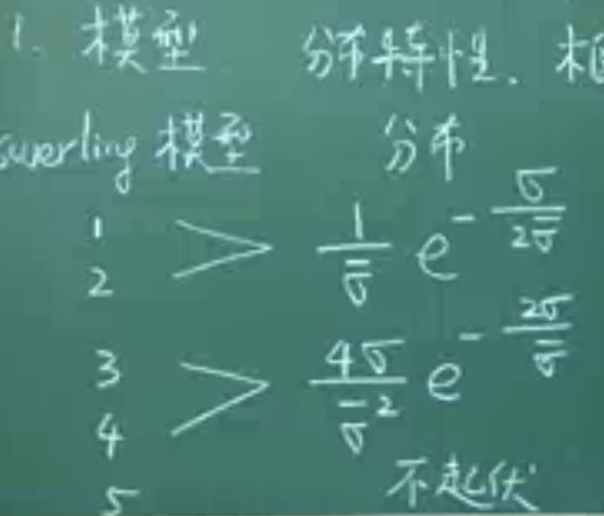 1. 模型 分布特性.
swerling 模型 分布
1
2 > \frac{1}{\bar{σ}} e^{-\frac{σ}{2\bar{σ}}}
3
4 > \frac{4σ}{\bar{σ}^2} e^{-\frac{2σ}{\bar{σ}}}
5 不起伏